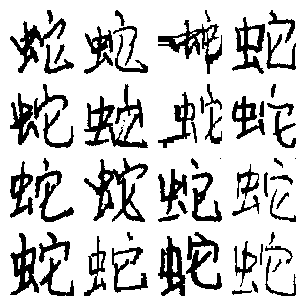 蛇蛇蛇蛇
蛇蛇蛇蛇
蛇蛇蛇蛇
蛇蛇蛇蛇